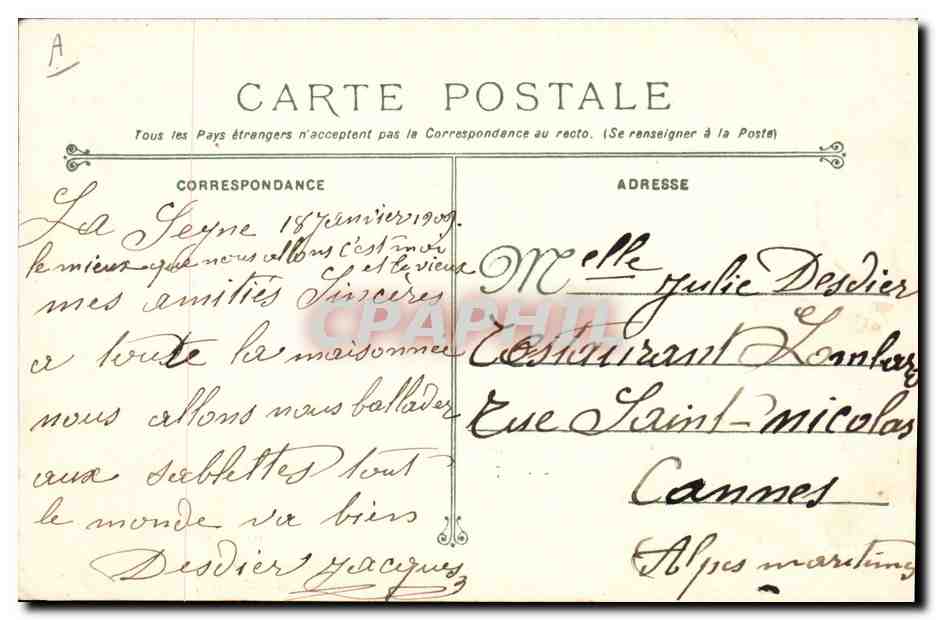 A
CARTE POSTALE
Tous les Pays étrangers n'acceptent pas la Correspondance au recto. (Se renseigner à la Poste)
CORRESPONDANCE
La Seyne 18 Janvier 1909.
le mieux que nous allons c'est moi
et le vieux
mes amitiés Sincères
a toute la maisonnée
nous allons nous ballader
aux sablettes tout
le monde va bien
Desdier Jacques
ADRESSE
Melle Julie Desdier
Restaurant Lombard
Rue Saint-nicolas
Cannes
Alpes maritimes
CPAPHIL